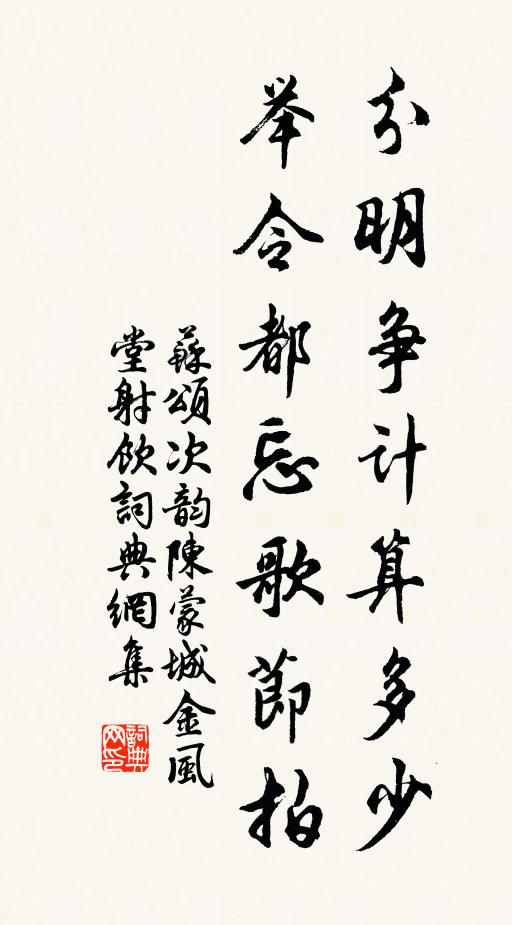 分明争计算多少
举令都忘歌節拍
蘇頌次韵陳蒙城金風
堂射飲詞典網集
詞典网印